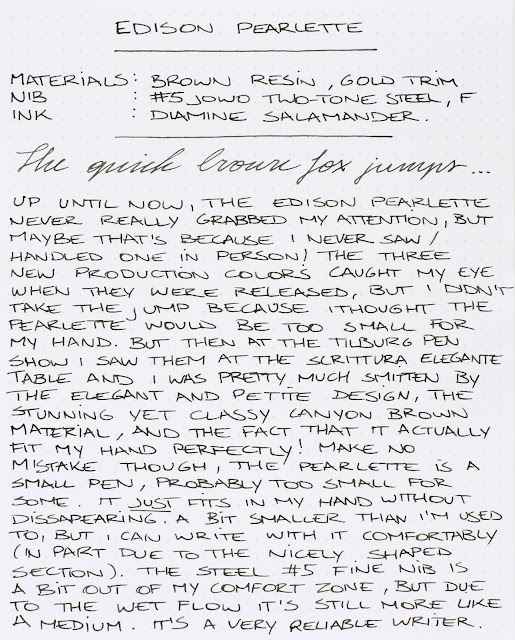 EDISON PEARLETTE
MATERIALS: BROWN RESIN, GOLD TRIM
NIB : #5 JOWO TWO-TONE STEEL, F
INK : DIAMINE SALAMANDER.
The quick brown fox jumps...
UP UNTIL NOW, THE EDISON PEARLETTE
NEVER REALLY GRABBED MY ATTENTION, BUT
MAYBE THAT'S BECAUSE I NEVER SAW/
HANDLED ONE IN PERSON! THE THREE
NEW PRODUCTION COLORS CAUGHT MY EYE
WHEN THEY WERE RELEASED, BUT I DIDN'T
TAKE THE JUMP BECAUSE I THOUGHT THE
PEARLETTE WOULD BE TOO SMALL FOR
MY HAND. BUT THEN AT THE TILBURG PEN
SHOW I SAW THEM AT THE SCRITTURA ELEGANTE
TABLE AND I WAS PRETTY MUCH SMITTEN BY
THE ELEGANT AND PETITE DESIGN, THE
STUNNING YET CLASSY CANYON BROWN
MATERIAL, AND THE FACT THAT IT ACTUALLY
FIT MY HAND PERFECTLY! MAKE NO
MISTAKE THOUGH, THE PEARLETTE IS A
SMALL PEN, PROBABLY TOO SMALL FOR
SOME. IT JUST FITS IN MY HAND WITHOUT
DISSAPEARING. A BIT SMALLER THAN I'M USED
TO, BUT I CAN WRITE WITH IT COMFORTABLY
(IN PART DUE TO THE NICELY SHAPED
SECTION). THE STEEL #5 FINE NIB IS
A BIT OUT OF MY COMFORT ZONE, BUT DUE
TO THE WET FLOW IT'S STILL MORE LIKE
A MEDIUM. IT'S A VERY RELIABLE WRITER.